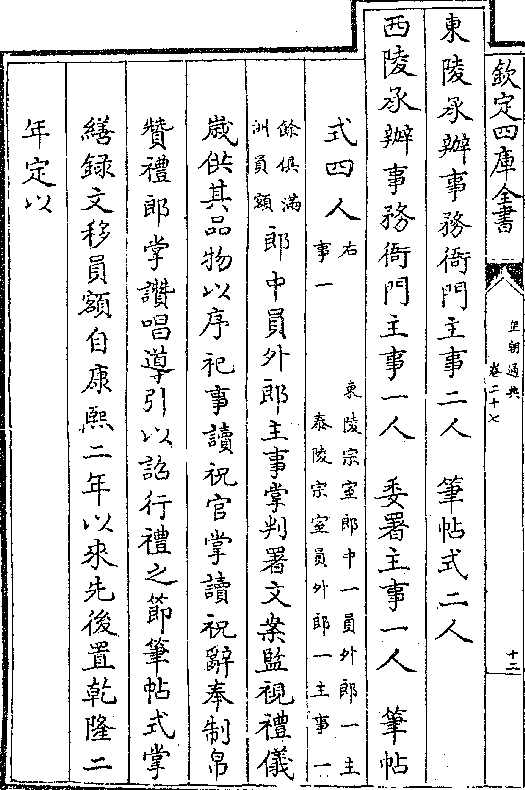 欽定四庫全書
皇朝通典
卷二十七
十二
東陵承辦事務衙門主事二人 筆帖式二人
西陵承辦事務衙門主事一人 委署主事一人 筆帖
式四人
右 東陵宗室郎中一員外郎一主
事一 泰陵宗室員外郎一主事一
餘俱滿
洲員額
郎中員外郎主事掌判署文案監視禮儀
歲供其品物以序祀事讀祝官掌讀祝辭奉制帛
贊禮郎掌讚唱導引以詔行禮之節筆帖式掌
繕録文移員額自康熙二年以來先後置乾隆二
年定以